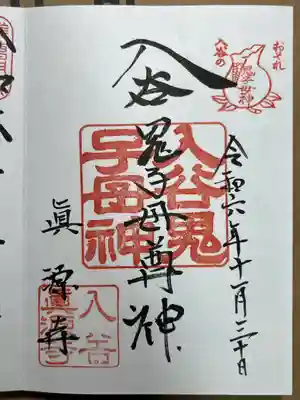 おそれ
入谷の
鬼子母神
令和六年十一月三十日
入谷
鬼子母尊神
入谷鬼
子母神
眞源寺
入谷
眞源寺